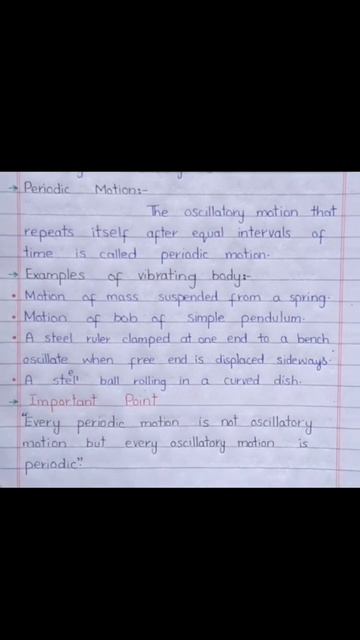 → Periodic Motion:-
The oscillatory motion that
repeats itself after equal intervals of
time is called periodic motion.
→ Examples of vibrating body:-
• Motion of mass suspended from a spring.
• Motion of bob of simple pendulum.
• A steel ruler clamped at one end to a bench
oscillate when free end is displaced sideways.
• A steel ball rolling in a curved dish.
→ Important Point
"Every periodic motion is not oscillatory
motion but every oscillatory motion is
periodic".